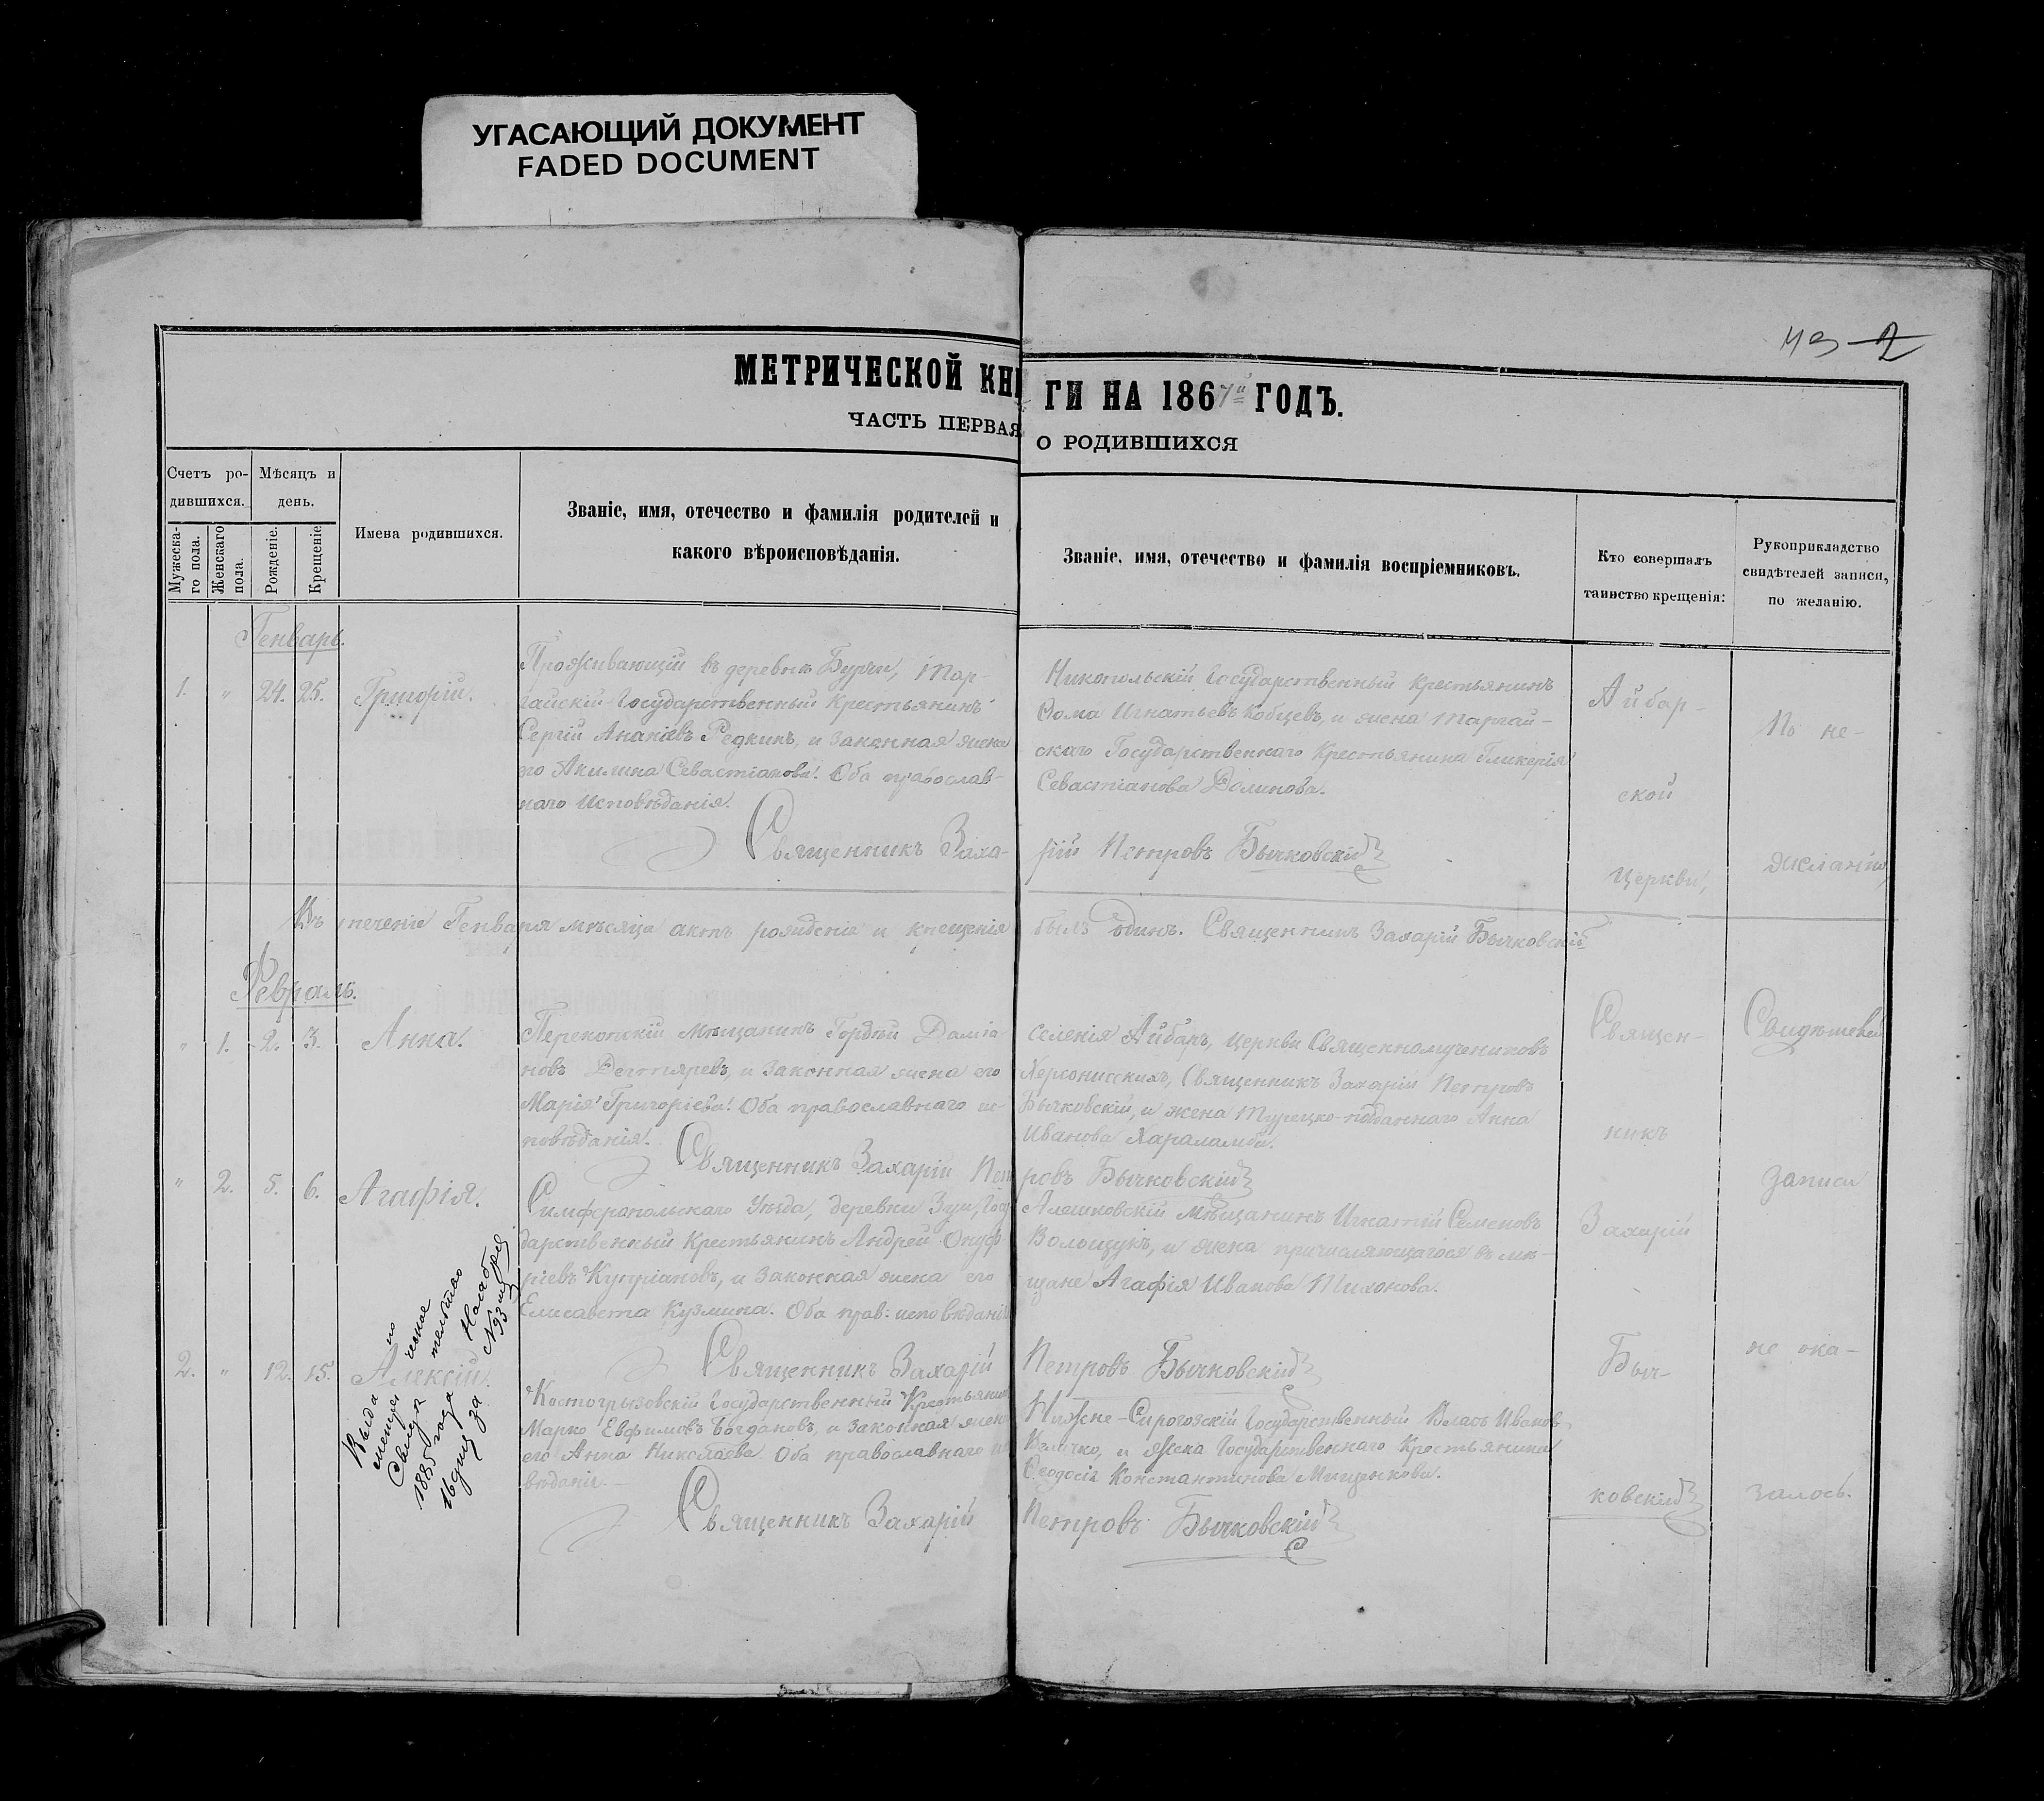 УГАСАЮЩИЙ ДОКУМЕНТ
FADED DOCUMENT
МЕТРИЧЕСКОЙ КНИ
ГИ НА 1867й ГОДЪ.
ЧАСТЬ ПЕРВАЯ
О РОДИВШИХСЯ
Счетъ ро-
дившихся.
Мѣсяцъ и
день.
Мужеска-
го пола.
Женскаго
пола.
Рожденіе.
Крещеніе
Имена родившихся.
Званіе, имя, отечество и фамилія родителей и
какого вѣроисповѣданія.
Званіе, имя, отечество и фамилія воспріемниковъ.
Кто совершалъ
таинство крещенія:
Рукоприкладство
свидѣтелей записи,
по желанію.
Генварь.
1. " 24. 25. Григорій.
Проживающій въ деревнѣ Бурчи, Тар-
гайскій Государственный Крестьянинъ
Сергій Ананіевъ Редкинъ, и законная жена
его Акилина Севастіанова. Оба православ-
наго исповѣданія.
Священникъ Заха-
Никопольскій Государственный Крестьянинъ
Ѳома Игнатьевъ Кобцевъ, и жена Таргай-
скаго Государственнаго Крестьянина Гликерія
Севастіанова Долинова.
рій Петровъ Бычковскій
Въ теченіе Генваря мѣсяца актъ рожденія и крещенія
былъ Одинъ. Священникъ Захарій Бычковскій
Февраль.
" 1. 2. 3. Анна.
Перекопскій Мѣщанинъ Гордѣй Даміа
новъ Дегтяревъ, и законная жена его
Марія Григоріева. Оба православнаго ис-
повѣданія.
Священникъ Захарій Пет
селенія Айбаръ, церкви Священномучениковъ
Херсонисскихъ, Священникъ Захарій Петровъ
Бычковскій, и жена Турецко-подданнаго Анна
Иванова Хараламби.
ровъ Бычковскій
" 2. 5. 6. Агафія.
Симферопольскаго Уѣзда, деревни Зуи, Госу
дарственный Крестьянинъ Андрей Онуф
ріевъ Купріановъ, и законная жена его
Елисавета Кузмина. Оба прав: исповѣданія
Священникъ Захарій
Алешковскій Мѣщанинъ Игнатій Семеновъ
Волощукъ, и жена причисляющагося въ мѣ-
щане Агафія Иванова Тихонова.
Петровъ Бычковскій
2. " 12. 15. Алексій.
Костогрызовскій Государственный Крестьянинъ
Марко Евфимовъ Богдановъ, и законная жена
его Анна Николаева. Оба православнаго
вѣданія.
Священникъ Захарій
Нижне-Сирогозскій Государственный Власъ Ивановъ
Величко, и жена Государственнаго Крестьянина
Ѳеодосія Константинова Мищенкова.
Петровъ Бычковскій
1885 года Ноября
16 дня за № 93
Айбар-
ской
Церкви,
Священ-
никъ
Захарій
Быч-
ковскій
По не-
желанію,
Свидѣтелей
записи
не ока-
залось.